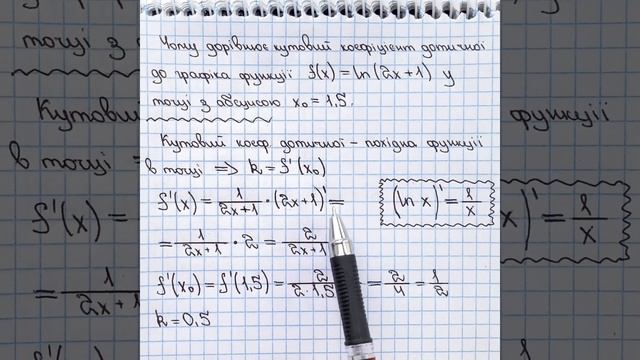 Чому дорівнює кутовий коефіцієнт дотичної
до графіка функції f(x) = ln(2x+1) у
точці з абсцисою x₀ = 1,5.
Кутовий коеф. дотичної – похідна функції
в точці ⇒ k = f'(x₀)
f'(x) = 1/(2x+1) · (2x+1)' =
(ln x)' = 1/x
= 1/(2x+1) · 2 = 2/(2x+1)
f'(x₀) = f'(1,5) = 2/(2·1,5 = 2/4 = 1/2
k = 0,5